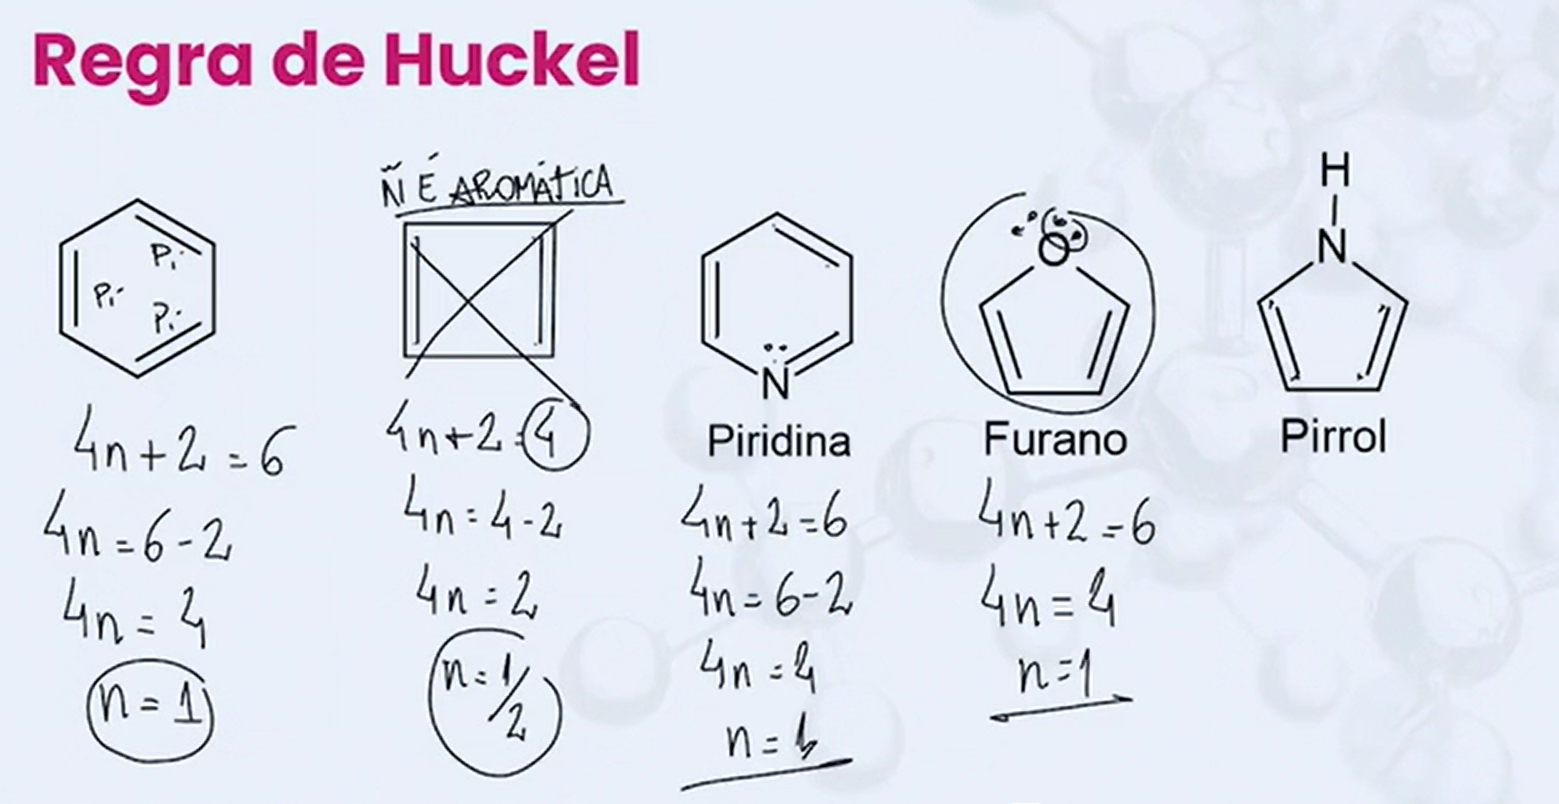 Regra de Huckel
Pi
Pi
Pi
4n+2=6
4n=6-2
4n=4
n=1
Ñ É AROMÁTICA
4n+2=4
4n=4-2
4n=2
n=1/2
N
Piridina
4n+2=6
4n=6-2
4n=4
n=1
O
Furano
4n+2=6
4n=4
n=1
H
N
Pirrol